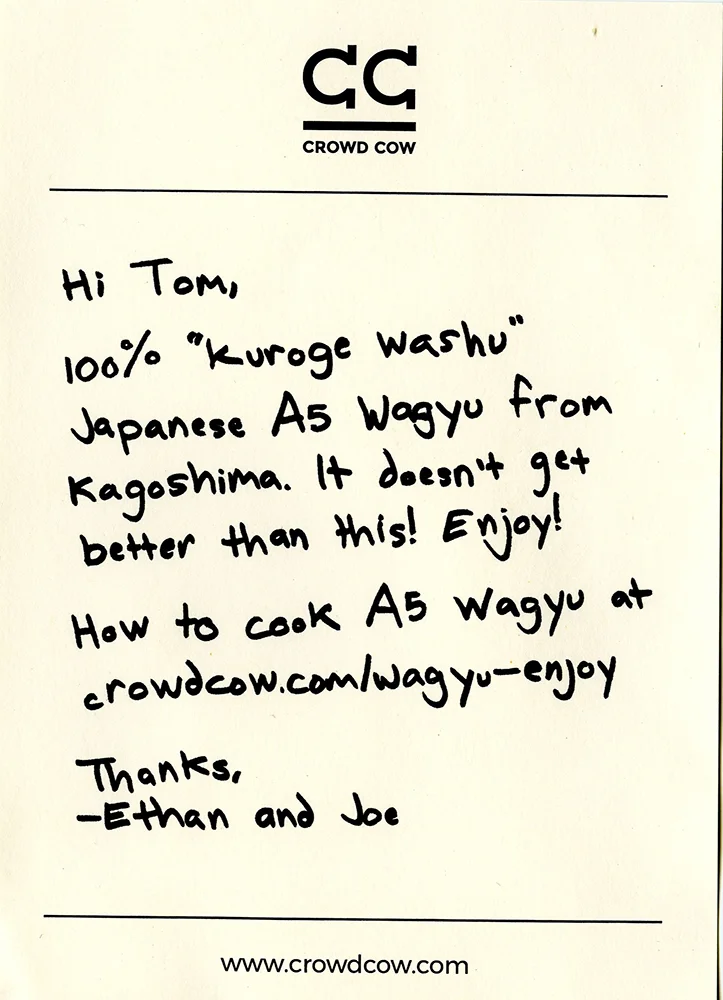 CC
CROWD COW
Hi Tom,
100% "Kuroge Washu"
Japanese A5 Wagyu from
Kagoshima. It doesn't get
better than this! Enjoy!
How to cook A5 Wagyu at
crowdcow.com/wagyu-enjoy
Thanks,
-Ethan and Joe
www.crowdcow.com